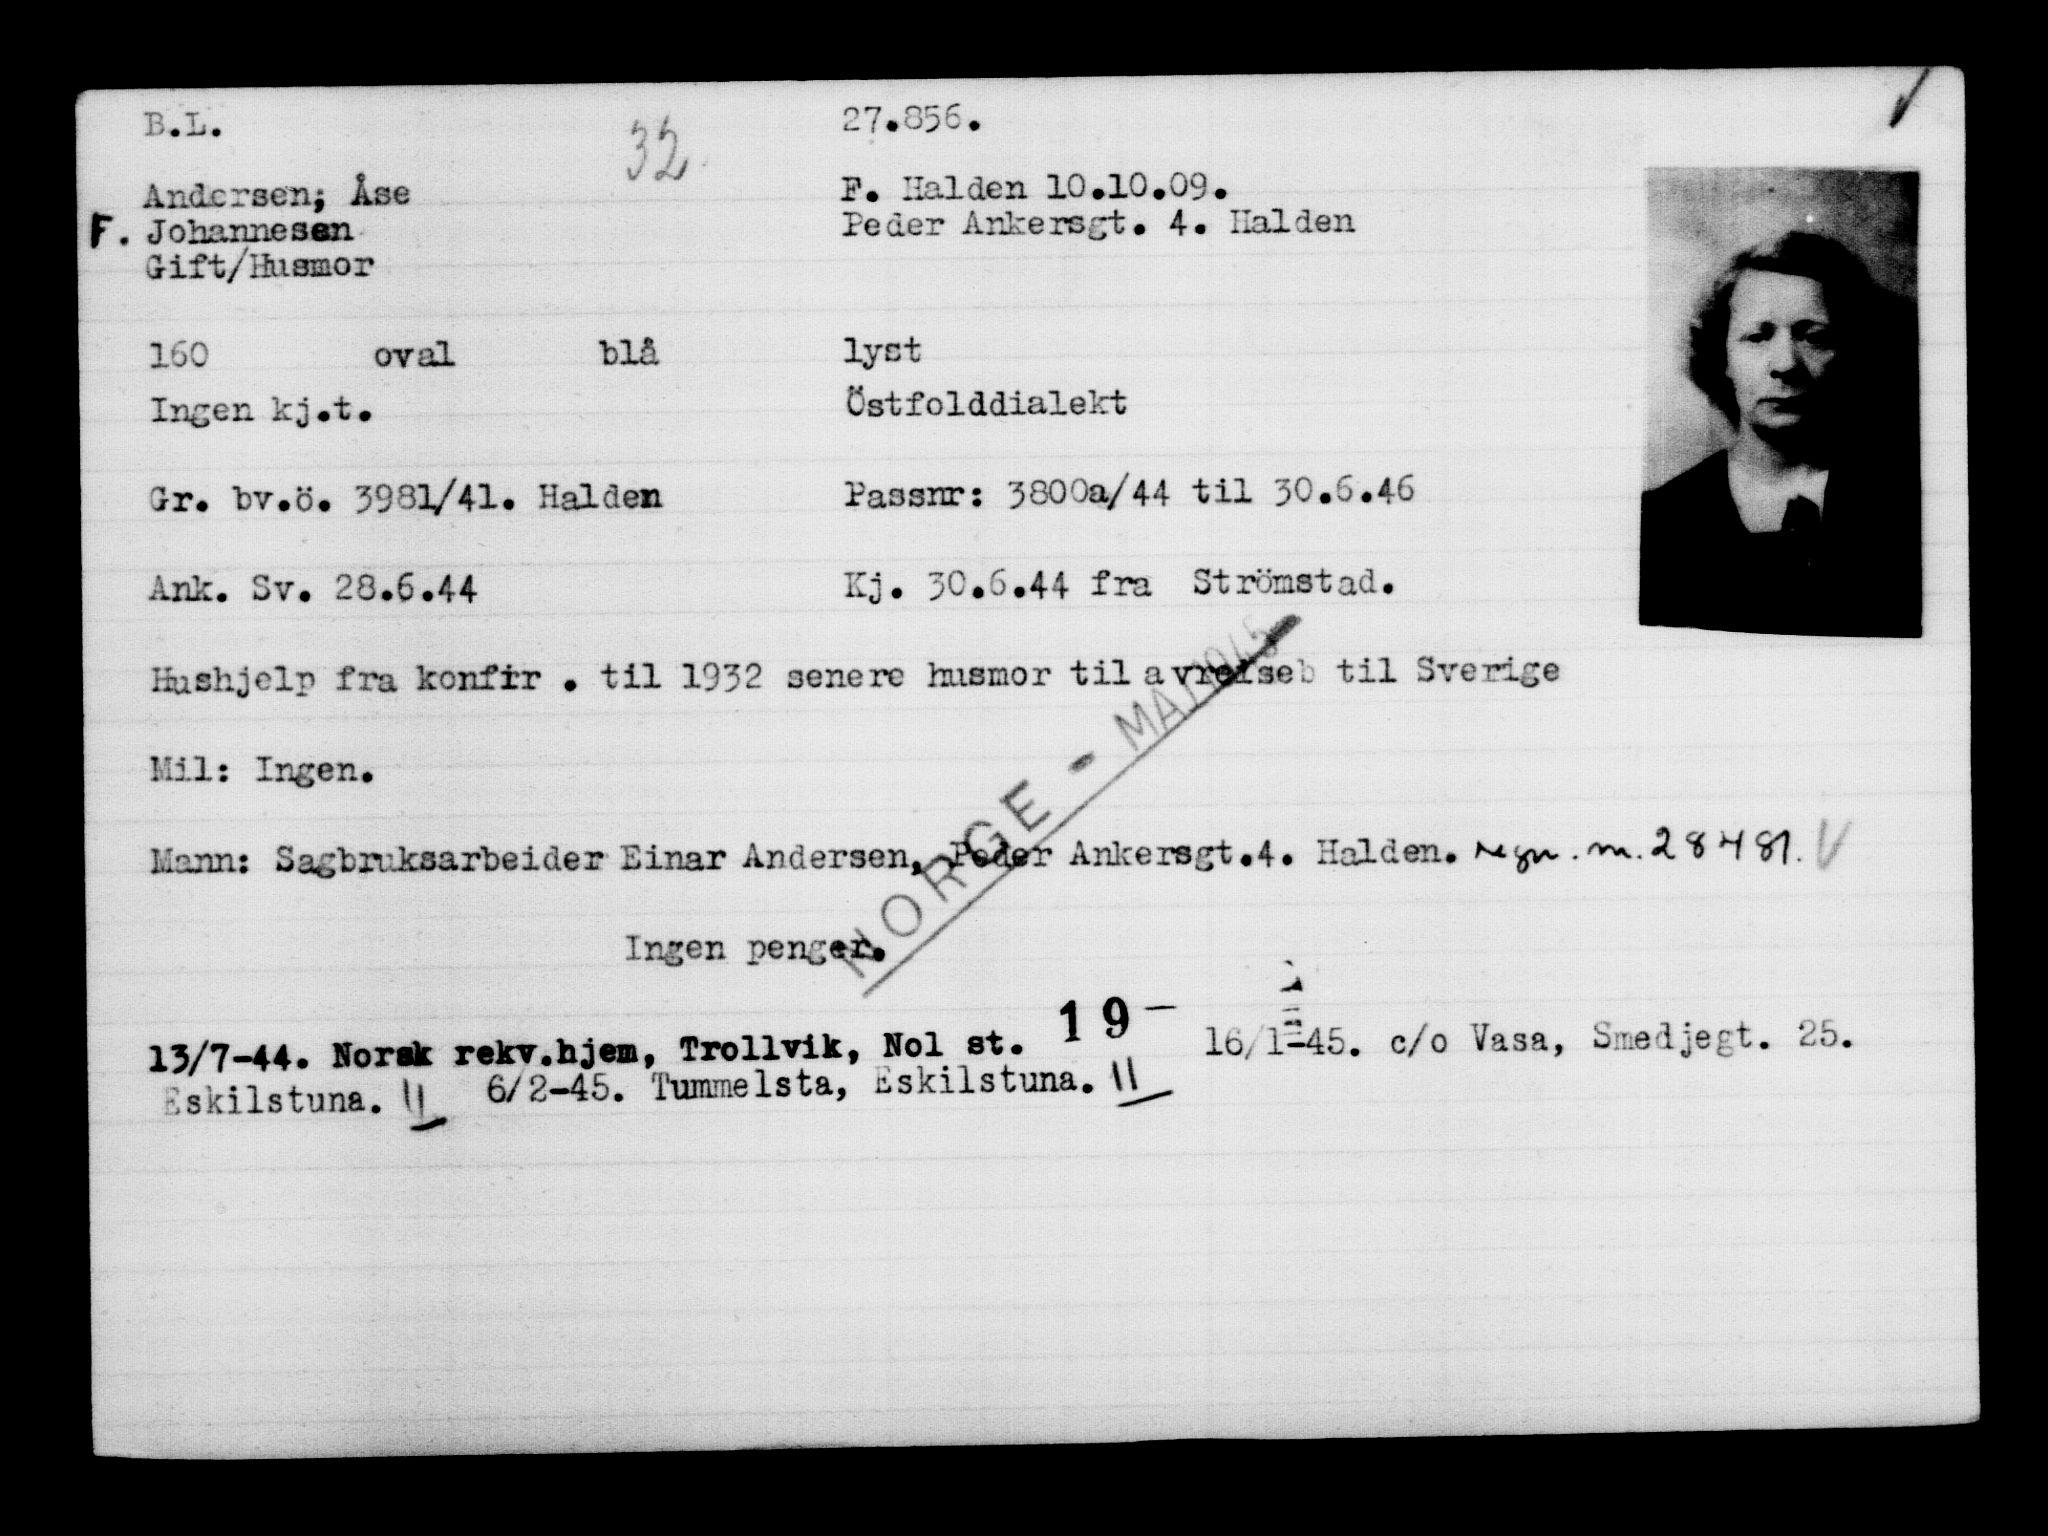 B.L.
32
27.856.
Andersen; Åse
F. Halden 10.10.09.
F. Johannesen
Peder Ankersgt. 4. Halden
Gift/Husmor
160 oval blå lyst
Ingen kj.t. Östfolddialekt
Gr. bv.ö. 3981/41. Halden Passnr: 3800a/44 til 30.6.46
Ank. Sv. 28.6.44 Kj. 30.6.44 fra Strömstad.
Hushjelp fra konfir . til 1932 senere husmor til avreiseb til Sverige
Mil: Ingen.
NORGE - MAI 1945
Mann: Sagbruksarbeider Einar Andersen, Peder Ankersgt.4. Halden. regn. m. 28481. V
Ingen penger.
13/7-44. Norsk rekv.hjem, Trollvik, Nol st. 19- 16/1-45. c/o Vasa, Smedjegt. 25.
Eskilstuna. II 6/2-45. Tummelsta, Eskilstuna. II